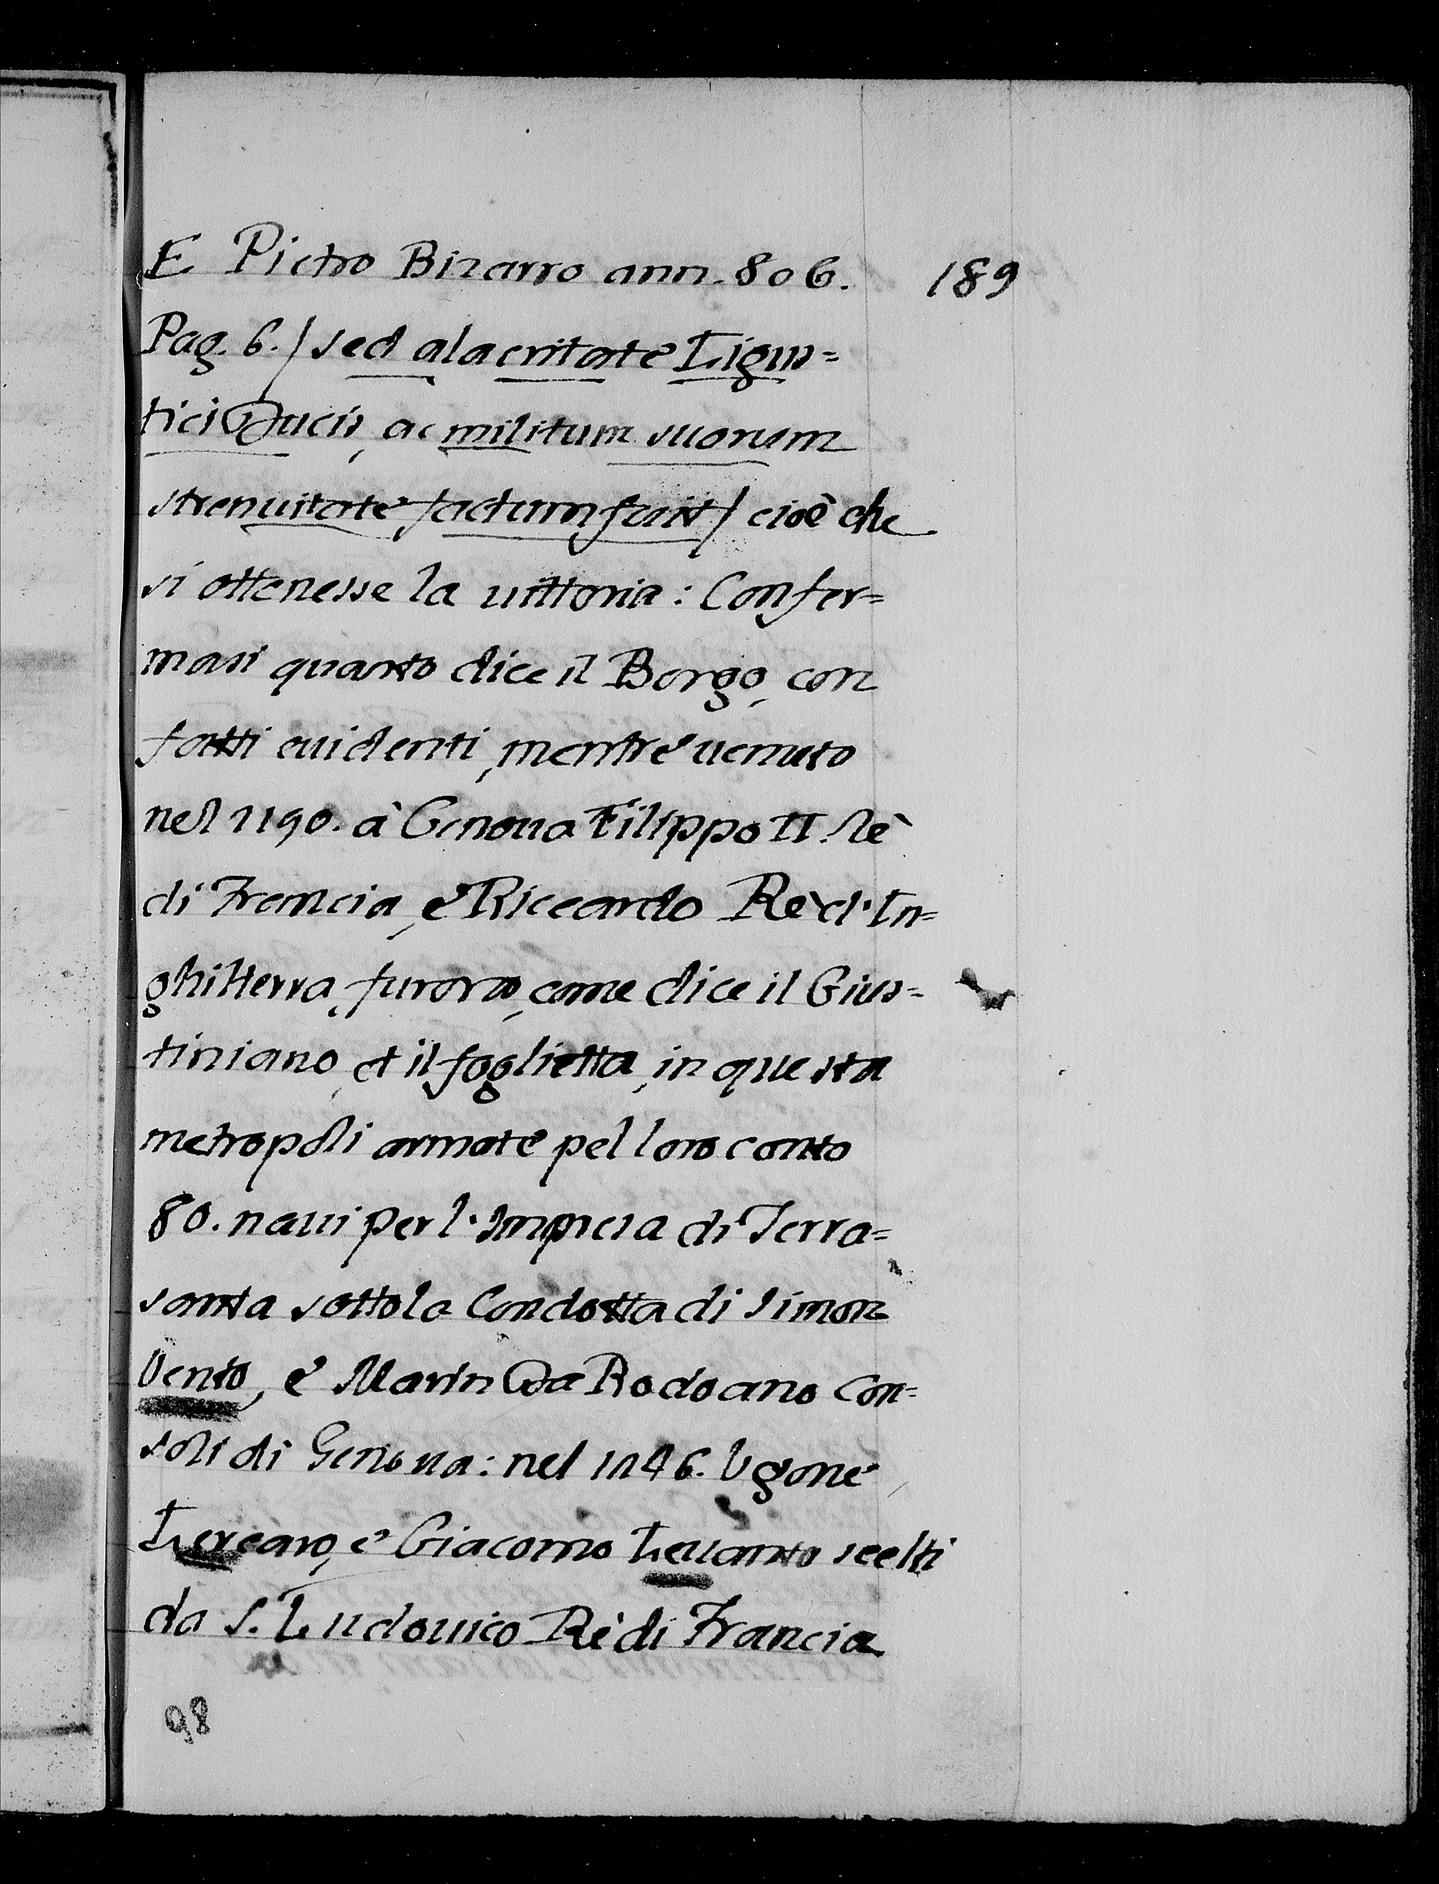 E Pietro Bizarro ann. 806. 189
Pag. 6./ sed alacritate Ligus=
tici Ducis, ac militum suorum
strenuitate factum fuit/ cioè che
si ottenesse la uittoria: Confer=
masi quanto dice il Borgo, con
fatti euidenti, mentre uenuto
nel 1190. à Genoua Filippo II. Rè
di Francia, e Riccardo Rè d'In=
ghilterra, furono, come dice il Gius=
tiniano, et il foglietta, in questa
metropoli armate pel loro conto
80. naui per l'Impresa di Terra=
santa sotto la Condotta di Simon
Vento, e Marin Da Rodoano Con=
soli di Genoua: nel 1246. Ugone
Lercaro, e Giacomo Leuanto scelti
da S. Ludouico Rè di Francia
98